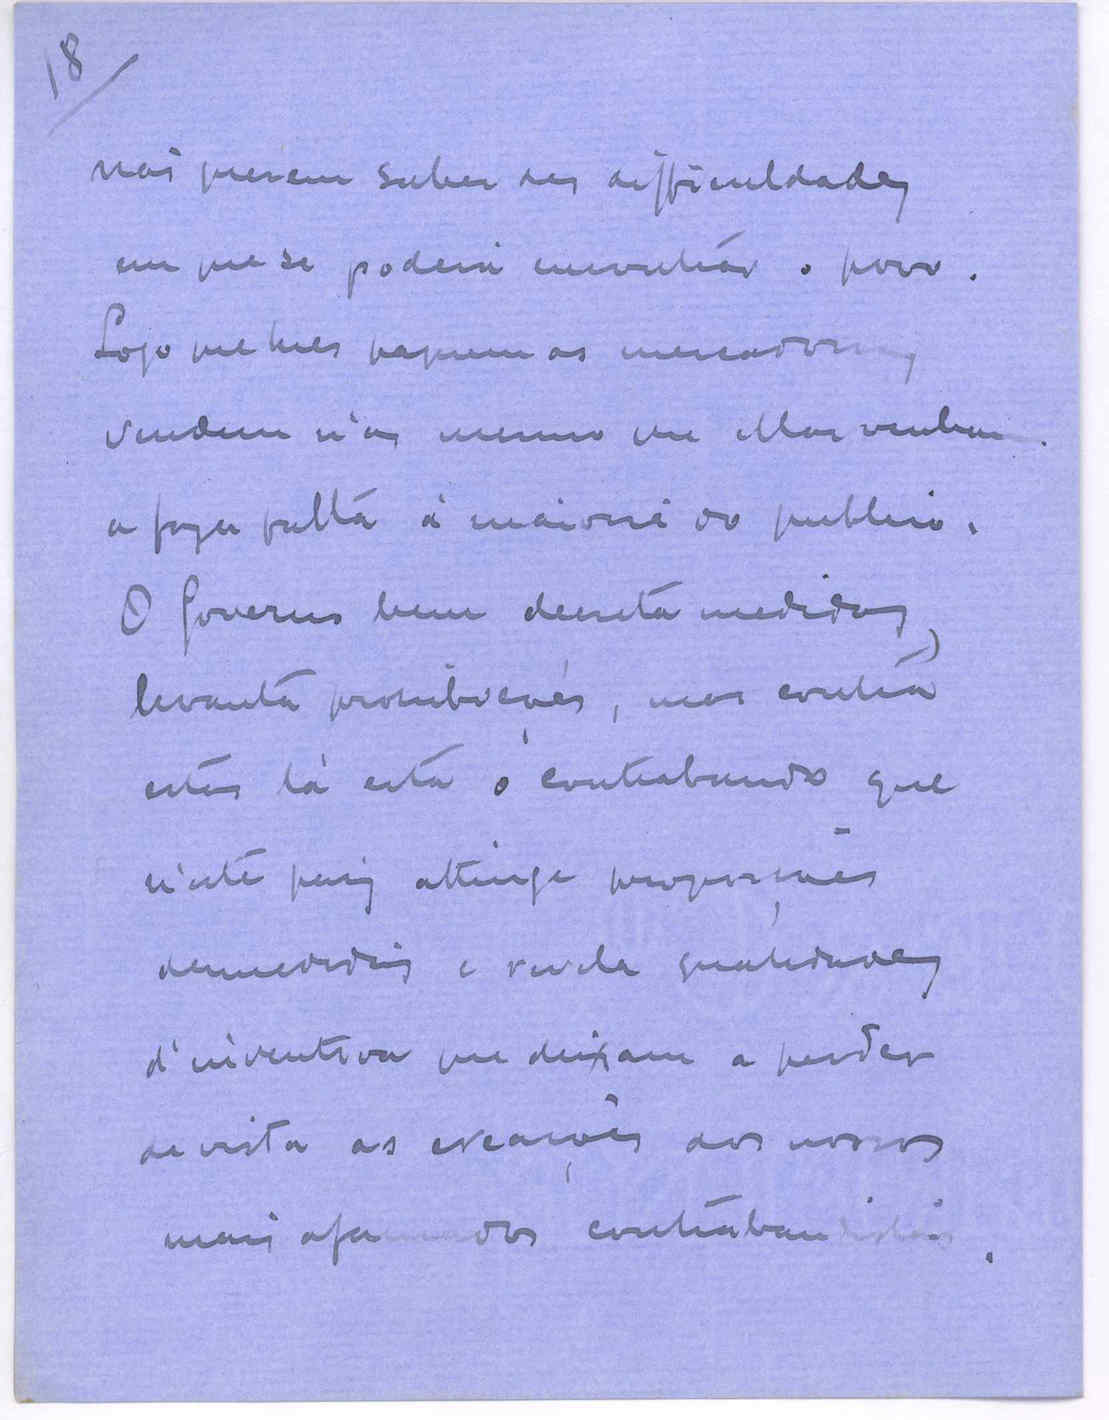 18
não querem saber das difficuldades
em que se poderá encontrar o povo.
Logo que lhes paguem as mercadorias
vendem n'as mesmo que ellas venham
a fazer falta á maioria do publico.
O Governo bem decreta medidas,
levanta prohibições, mas contra
estas lá está o contrabando que
n'este paiz attinge proporções
desmedidas e revela qualidades
d'inventiva que deixam a perder
de vista as creações dos nossos
mais afamados contrabandistas.